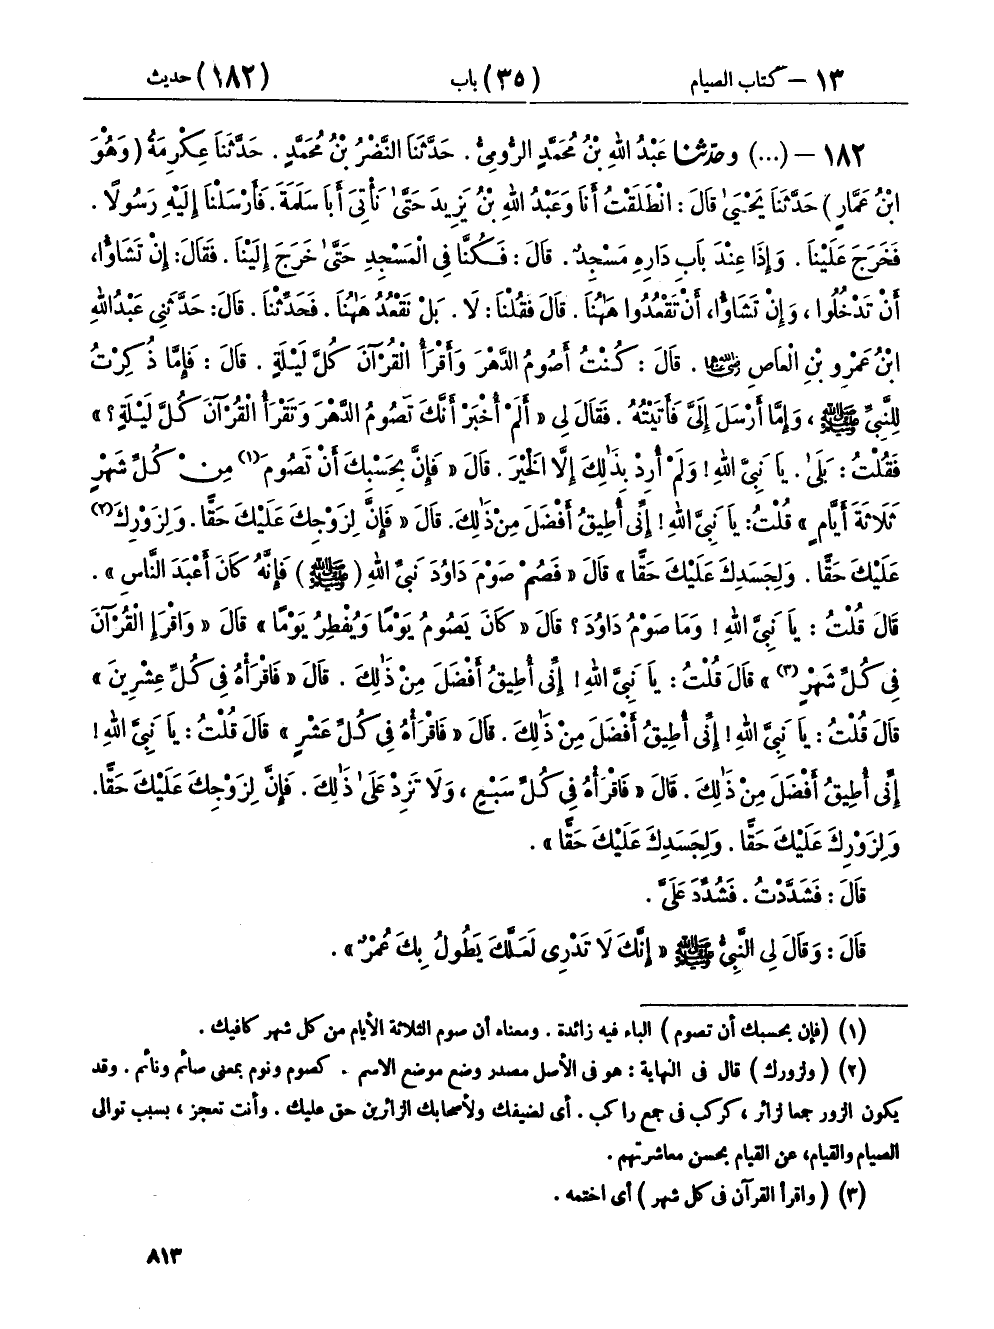 ١٣ – كتاب الصيام (٣٥) باب (١٨٢) حديث
١٨٢ – (...) وحَدَّثَنَا عَبْدُ اللهِ بْنُ مُحَمَّدٍ الرُّومِيُّ. حَدَّثَنَا النَّضْرُ بْنُ مُحَمَّدٍ. حَدَّثَنَا عِكْرِمَةُ (وَهُوَ
ابْنُ عَمَّارٍ) حَدَّثَنَا يَحْيَىٰ قَالَ: انْطَلَقْتُ أَنَا وَعَبْدُ اللهِ بْنُ يَزِيدَ حَتَّىٰ نَأْتِىَ أَبَا سَلَمَةَ. فَأَرْسَلْنَا إِلَيْهِ رَسُولًا.
فَخَرَجَ عَلَيْنَا. وَإِذَا عِنْدَ بَابِ دَارِهِ مَسْجِدٌ. قَالَ: فَكُنَّا فِى الْمَسْجِدِ حَتَّىٰ خَرَجَ إِلَيْنَا. فَقَالَ: إِنْ تَشَاؤُا،
أَنْ تَدْخُلُوا، وَإِنْ تَشَاؤُا، أَنْ تَقْعُدُوا هَٰهُنَا. قَالَ فَقُلْنَا: لَا. بَلْ نَقْعُدُ هَٰهُنَا. فَحَدِّثْنَا. قَالَ: حَدَّثَنِى عَبْدُ اللهِ
ابْنُ عَمْرِو بْنِ الْعَاصِ رضي الله عنهما. قَالَ: كُنْتُ أَصُومُ الدَّهْرَ وَأَقْرَأُ الْقُرْآنَ كُلَّ لَيْلَةٍ. قَالَ: فَإِمَّا ذُكِرْتُ
لِلنَّبِىِّ ﷺ، وَإِمَّا أَرْسَلَ إِلَىَّ فَأَتَيْتُهُ. فَقَالَ لِى «أَلَمْ أُخْبَرْ أَنَّكَ تَصُومُ الدَّهْرَ وَتَقْرَأُ الْقُرْآنَ كُلَّ لَيْلَةٍ؟»
فَقُلْتُ: بَلَىٰ. يَا نَبِىَّ اللهِ! وَلَمْ أُرِدْ بِذَٰلِكَ إِلَّا الْخَيْرَ. قَالَ «فَإِنَّ بِحَسْبِكَ أَنْ تَصُومَ(١) مِنْ كُلِّ شَهْرٍ
ثَلَاثَةَ أَيَّامٍ» قُلْتُ: يَا نَبِىَّ اللهِ! إِنِّى أُطِيقُ أَفْضَلَ مِنْ ذَٰلِكَ. قَالَ «فَإِنَّ لِزَوْجِكَ عَلَيْكَ حَقًّا. وَلِزَوْرِكَ(٢)
عَلَيْكَ حَقًّا. وَلِجَسَدِكَ عَلَيْكَ حَقًّا» قَالَ «فَصُمْ صَوْمَ دَاوُدَ نَبِىِّ اللهِ (ﷺ) فَإِنَّهُ كَانَ أَعْبَدَ النَّاسِ».
قَالَ قُلْتُ: يَا نَبِىَّ اللهِ! وَمَا صَوْمُ دَاوُدَ؟ قَالَ «كَانَ يَصُومُ يَوْمًا وَيُفْطِرُ يَوْمًا» قَالَ «وَاقْرَإِ الْقُرْآنَ
فِى كُلِّ شَهْرٍ(٣)» قَالَ قُلْتُ: يَا نَبِىَّ اللهِ! إِنِّى أُطِيقُ أَفْضَلَ مِنْ ذَٰلِكَ. قَالَ «فَاقْرَأْهُ فِى كُلِّ عِشْرِينَ»
قَالَ قُلْتُ: يَا نَبِىَّ اللهِ! إِنِّى أُطِيقُ أَفْضَلَ مِنْ ذَٰلِكَ. قَالَ «فَاقْرَأْهُ فِى كُلِّ عَشْرٍ» قَالَ قُلْتُ: يَا نَبِىَّ اللهِ!
إِنِّى أُطِيقُ أَفْضَلَ مِنْ ذَٰلِكَ. قَالَ «فَاقْرَأْهُ فِى كُلِّ سَبْعٍ، وَلَا تَزِدْ عَلَىٰ ذَٰلِكَ. فَإِنَّ لِزَوْجِكَ عَلَيْكَ حَقًّا.
وَلِزَوْرِكَ عَلَيْكَ حَقًّا. وَلِجَسَدِكَ عَلَيْكَ حَقًّا».
قَالَ: فَشَدَّدْتُ. فَشُدِّدَ عَلَىَّ.
قَالَ: وَقَالَ لِى النَّبِىُّ ﷺ «إِنَّكَ لَا تَدْرِى لَعَلَّكَ يَطُولُ بِكَ عُمْرٌ».
(١) (فإن بحسبك أن تصوم) الباء فيه زائدة. ومعناه أن صوم الثلاثة الأيام من كل شهر كافيك.
(٢) (ولزورك) قال فى النهاية: هو فى الأصل مصدر وضع موضع الاسم. كصوم ونوم بمعنى صائم ونائم. وقد
يكون الزور جمعا لزائر، كركب فى جمع راكب. أى لضيفك ولأصحابك الزائرين حق عليك. وأنت تعجز، بسبب توالى
الصيام والقيام، عن القيام بحسن معاشرتهم.
(٣) (واقرأ القرآن فى كل شهر) أى اختمه.
٨١٣